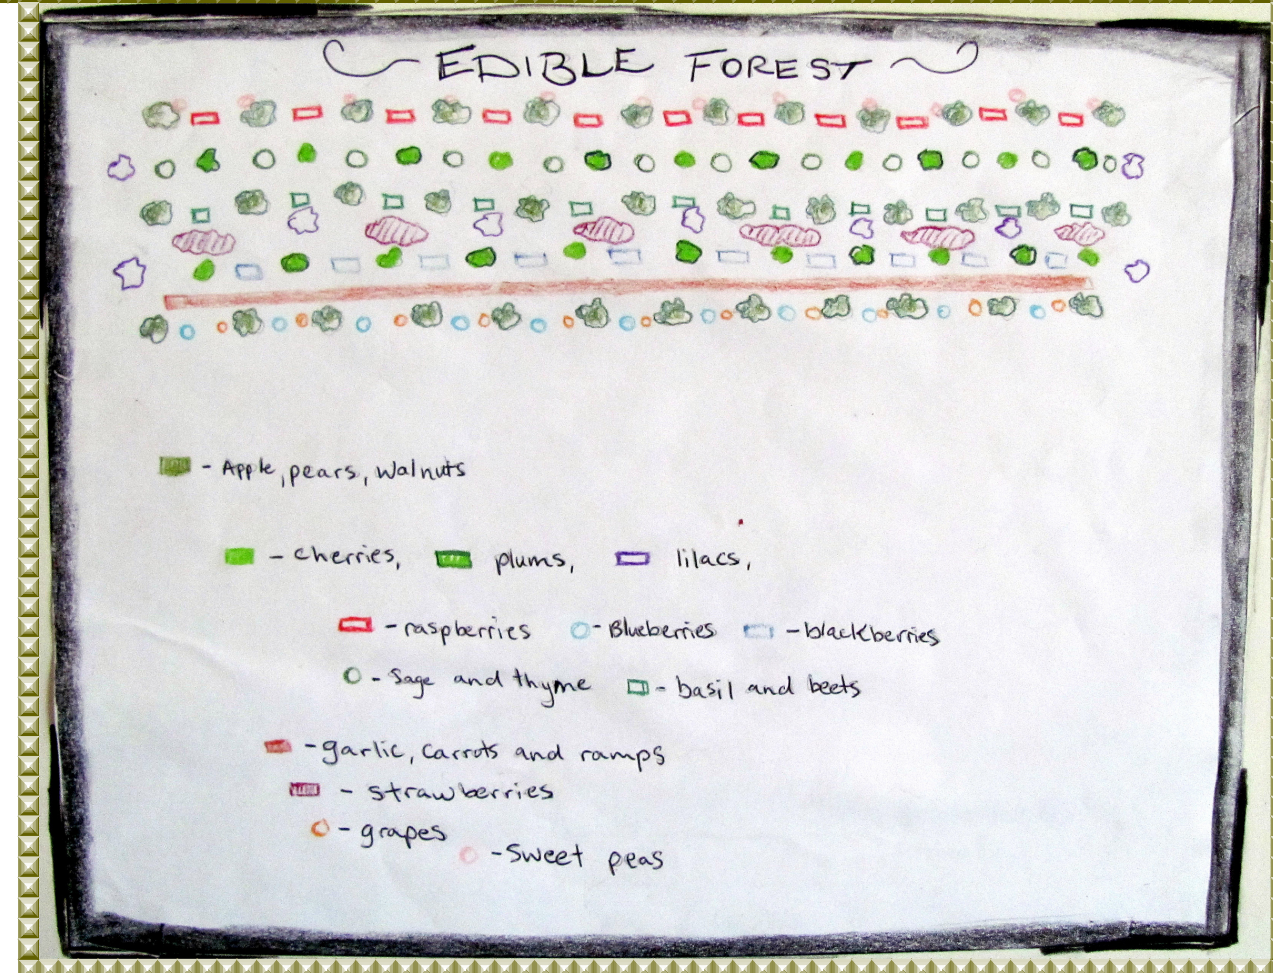 EDIBLE FOREST
- Apple, pears, walnuts
- cherries, plums, lilacs,
- raspberries - Blueberries - blackberries
- Sage and thyme - basil and beets
- garlic, carrots and ramps
- strawberries
- grapes
- Sweet peas